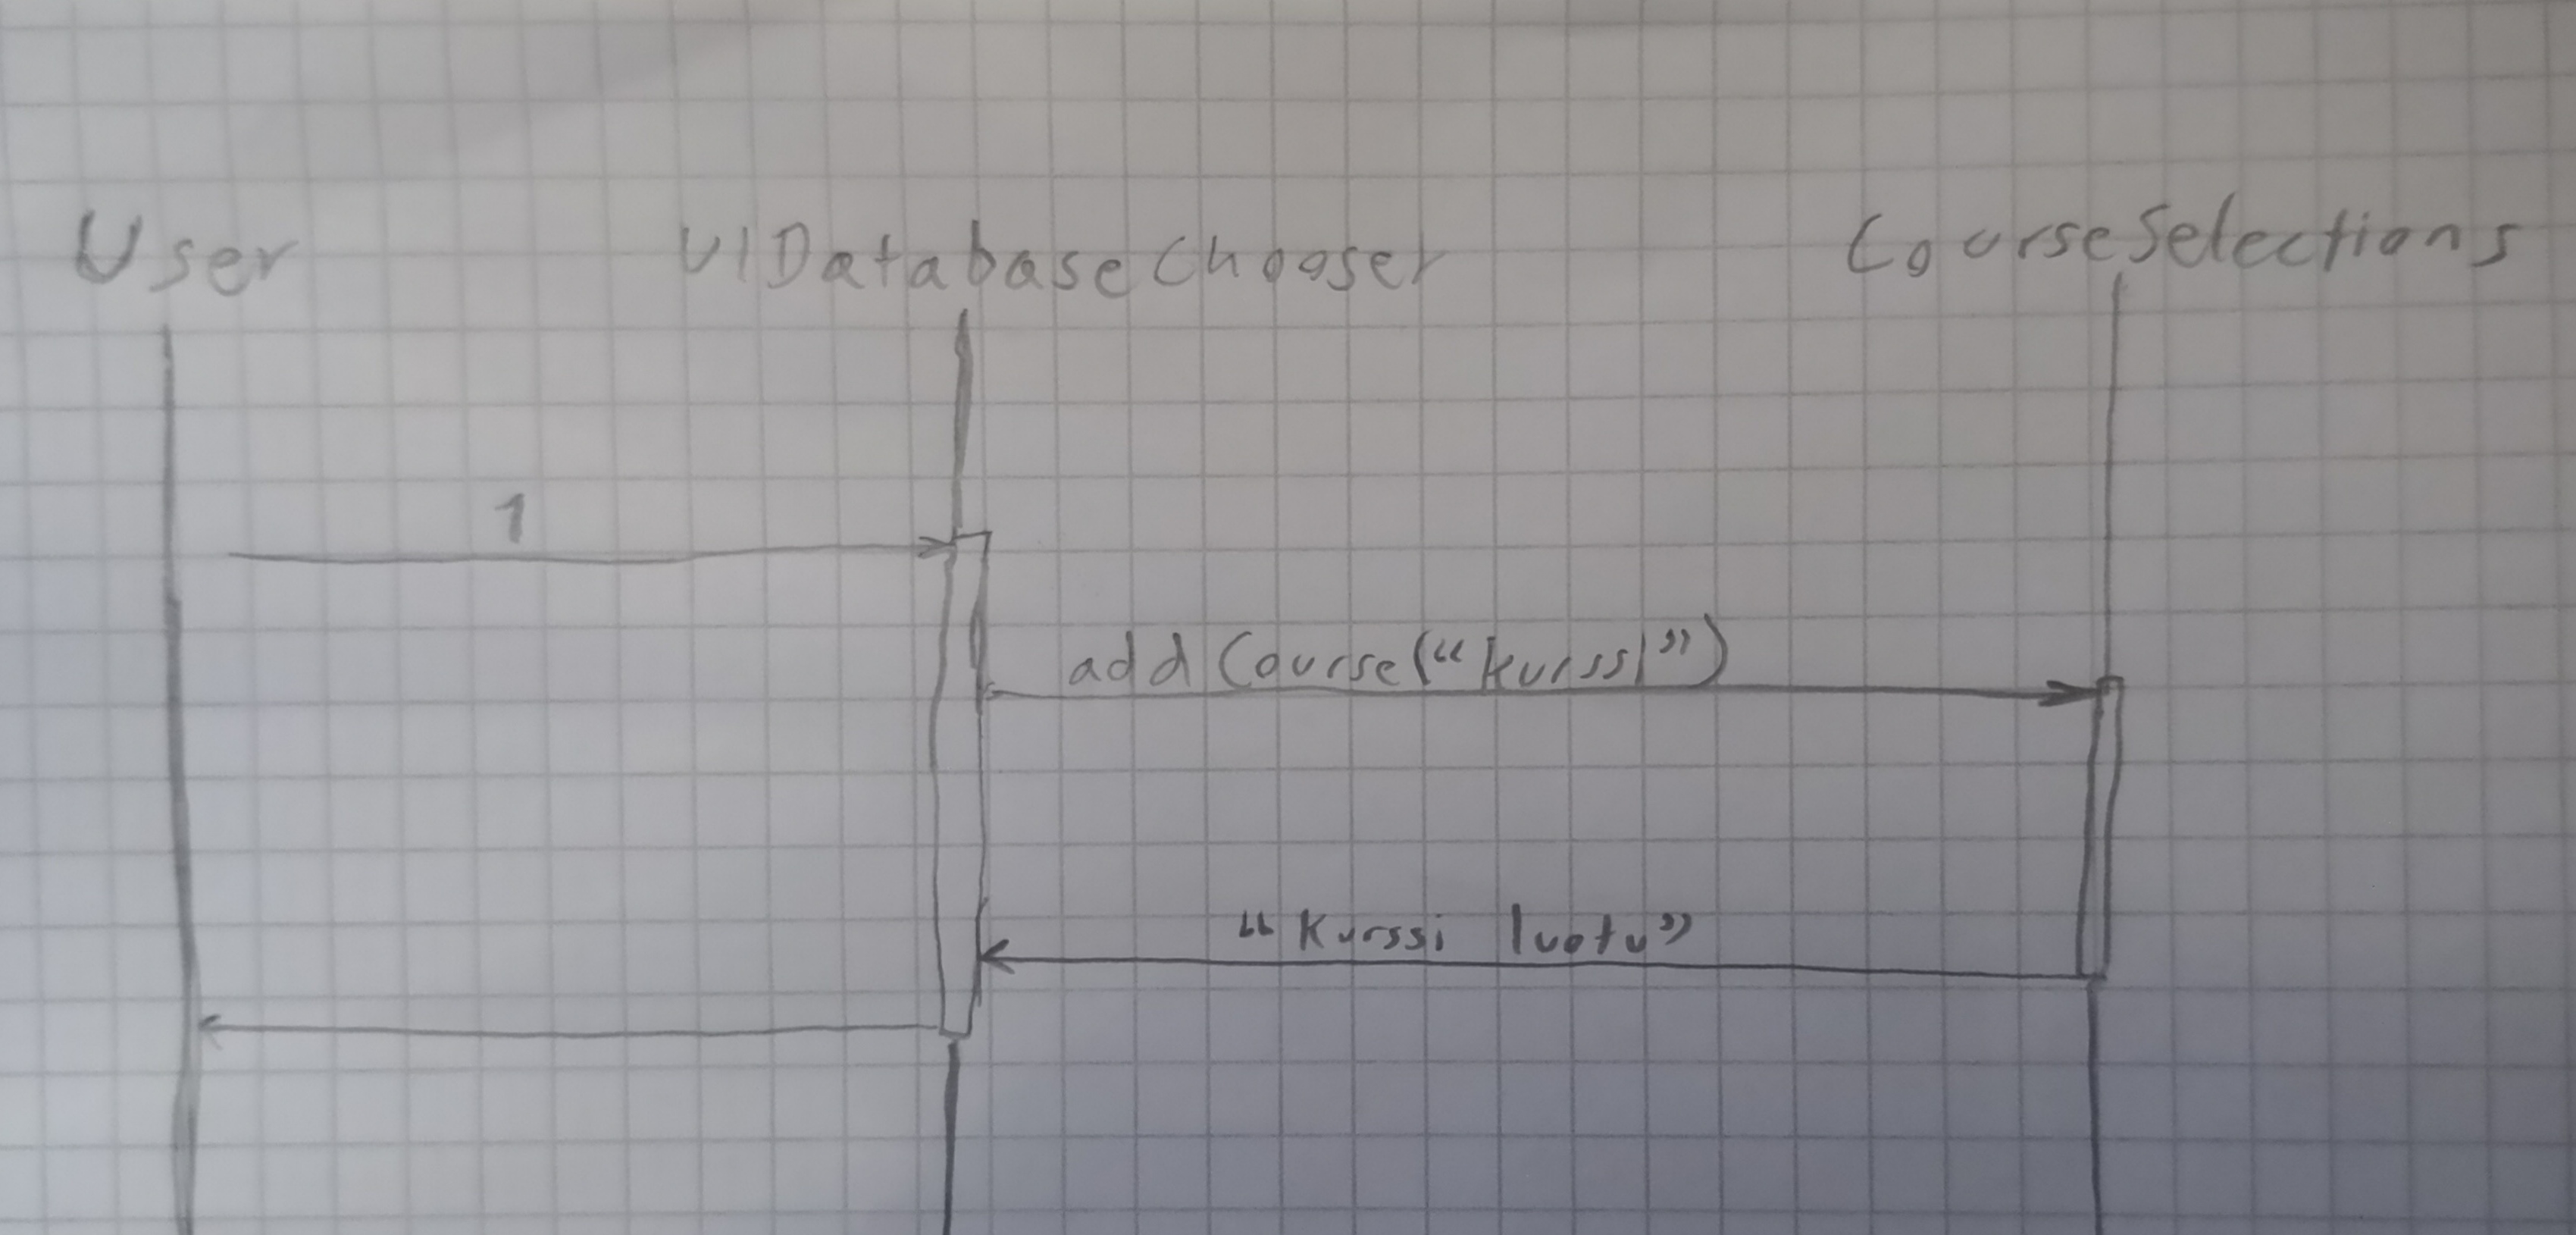 User UIDatabaseChooser CourseSelections
1
addCourse("kurssi")
"Kurssi luotu"